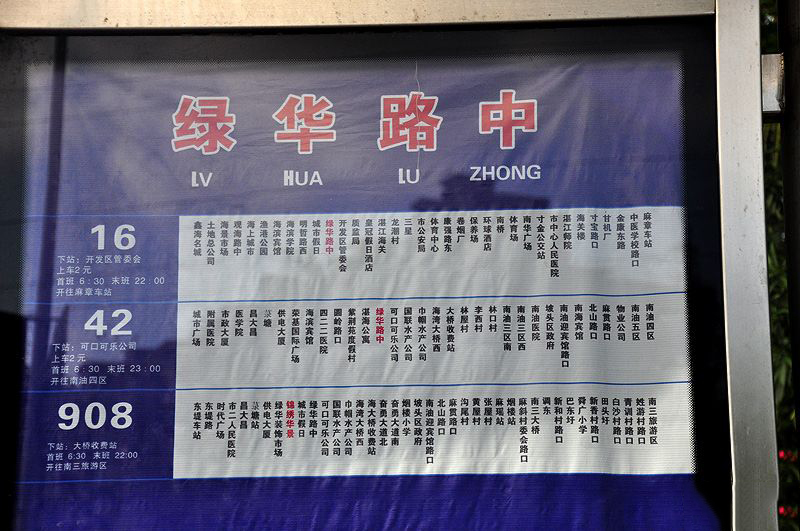 绿华路中
LV HUA LU ZHONG
16
下站：开发区管委会
上车2元
首班 6：30 末班 22：00
开往麻章车站
鑫海名城
土地总公司
海景市场
观海路中
海上城市
渔港公园
海滨宾馆
海滨学院
明哲路西
城市假日
绿华路中
开发区管委会
质监局
皇冠假日酒店
湛江海关
龙潮村
三星
市公安局
体育中心
康强路东
卷烟厂
保养场
环球酒店
南桥
体育场
南华广场
寸金公交站
市中心人民医院
湛江师院
海关楼
寸宝路口
甘机厂
金康东路
中医学校路口
麻章车站
42
下站：可口可乐公司
上车2元
首班 6：30 末班 23：00
开往南油四区
城市广场
附属医院
市政大厦
医学院
昌大昌
菉塘
供电大厦
荣基国际广场
海滨宾馆
四二二医院
圆岭路口
紫荆苑度假村
湛海公寓
绿华路中
可口可乐公司
国联水产公司
巾帼水产公司
海湾大桥西
大桥收费站
林屋村
李西村
林口村
南油三区南
南油三区西
南油医院
坡头区政府
南油迎宾馆路口
南海宾馆
北山路口
麻贯路口
物业公司
南油五区
南油四区
908
下站：大桥收费站
首班 6:30 末班 22:00
开往南三旅游区
东堤车站
东堤路
时代广场
市二人民医院
昌大昌
菉塘站
供电大厦
绿华装饰市场
锦绣华景
城市假日
绿华路中
可口可乐公司
国联水产公司
巾帼水产公司
海湾大桥西
海大桥收费站
奋勇大道北
奋勇大道南
烟楼小学
坡头区政府
南油迎宾馆路口
北山路口
麻贯路口
沟尾村
黄屋村
张屋村
麻瑶站
烟楼站
麻斜村委会路口
南三大桥
调东
新和村路口
巴东圩
舜广小学
新香村路口
田头圩
白沙村路口
青训村路口
姓游村路口
南三旅游区